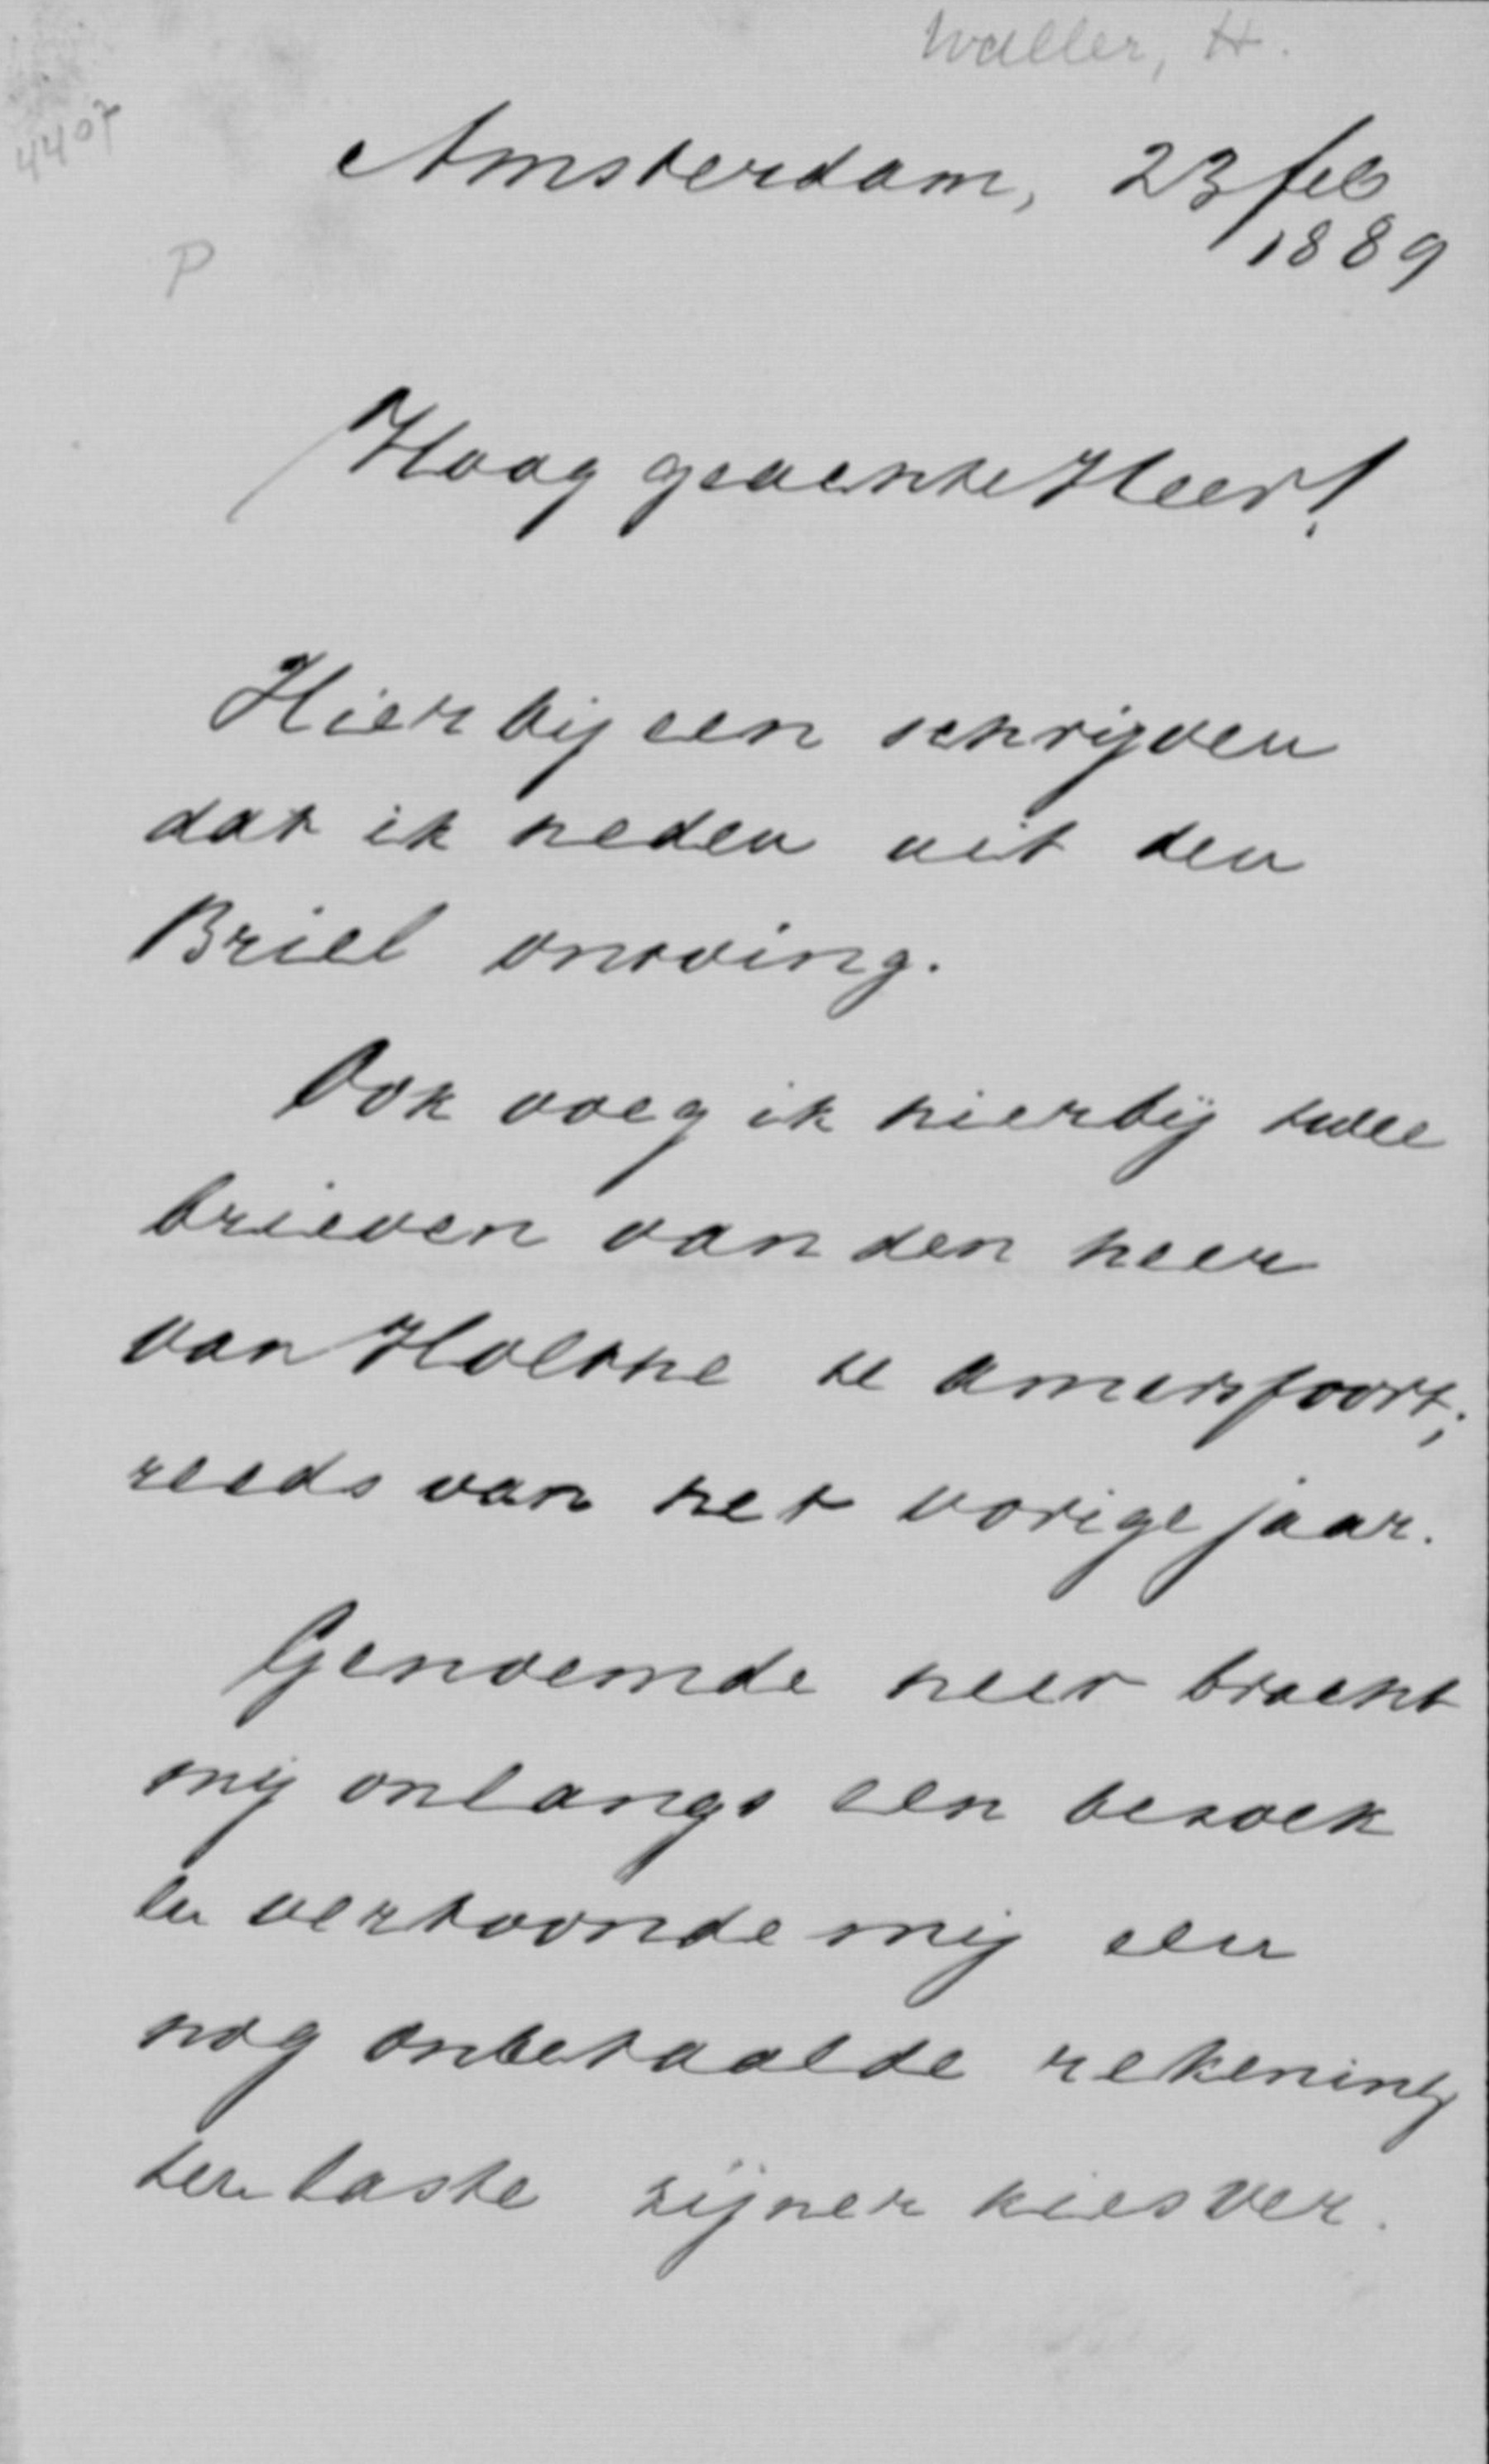 Waller, H.
4407
Amsterdam, 23 feb
1889
P
Hoog geachte Heer!
Hierbij een schrijven
dat ik heden uit den
Briel ontving.
Ook voeg ik hierbij twee
brieven van den heer
van Holthe te Amersfoort;
reeds van het vorige jaar.
Genoemde heer bracht
mij onlangs een bezoek
en vertoonde mij een
nog onbetaalde rekening
ten laste zijner kiesver.